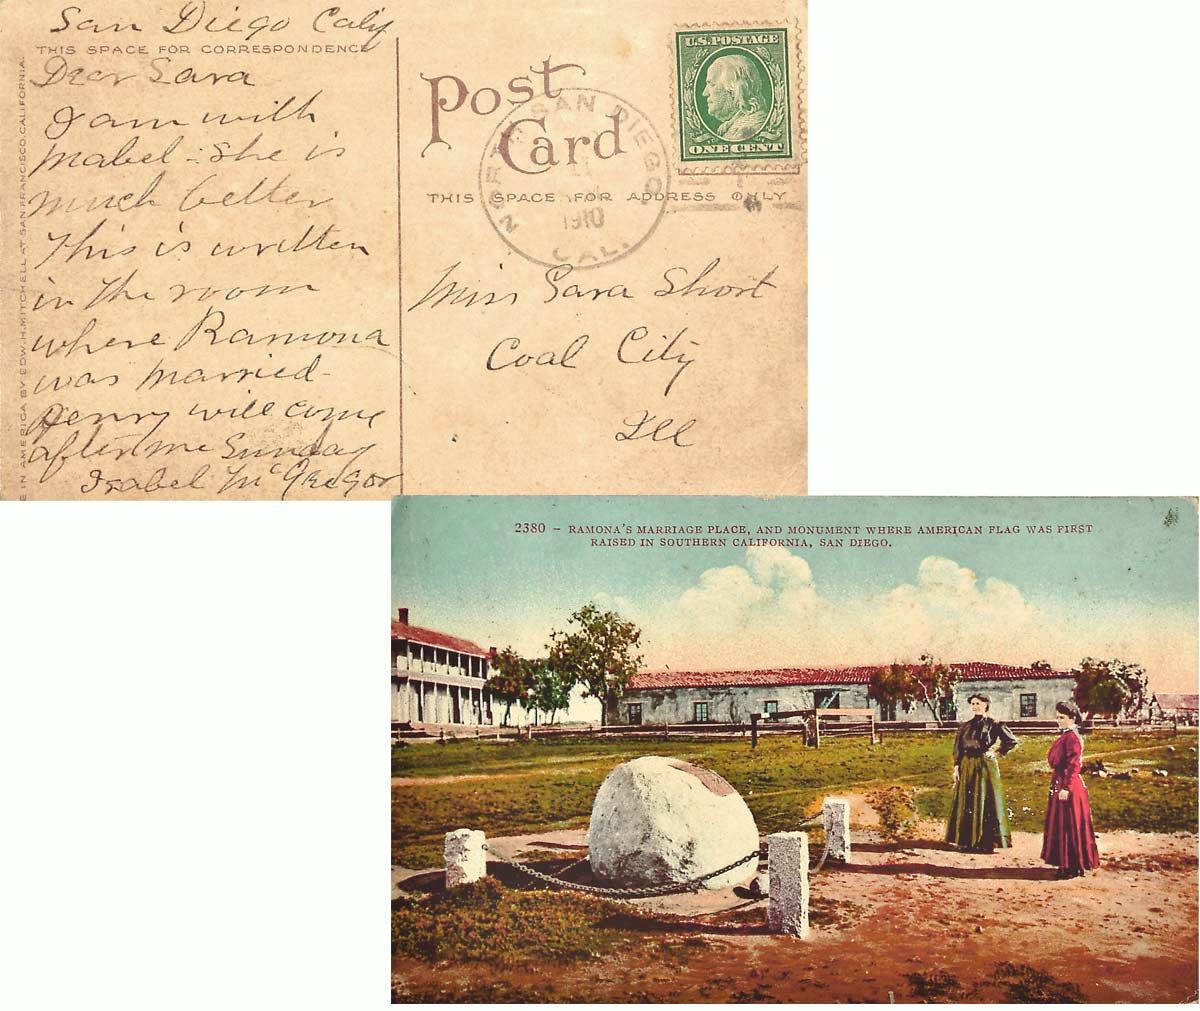 San Diego Calif
THIS SPACE FOR CORRESPONDENCE
Dear Sara
I am with
Mabel - She is
much better
This is written
in the room
where Ramona
was married -
Henry will come
after me Sunday
Isabel McGregor
E IN AMERICA BY EDW. H. MITCHELL AT SAN FRANCISCO, CALIFORNIA.
Post
Card
NORTH SAN DIEGO,
1910
CAL.
U.S. POSTAGE
ONE CENT
THIS SPACE FOR ADDRESS ONLY
Miss Sara Short
Coal City
Ill
2380 – RAMONA'S MARRIAGE PLACE, AND MONUMENT WHERE AMERICAN FLAG WAS FIRST
RAISED IN SOUTHERN CALIFORNIA, SAN DIEGO.